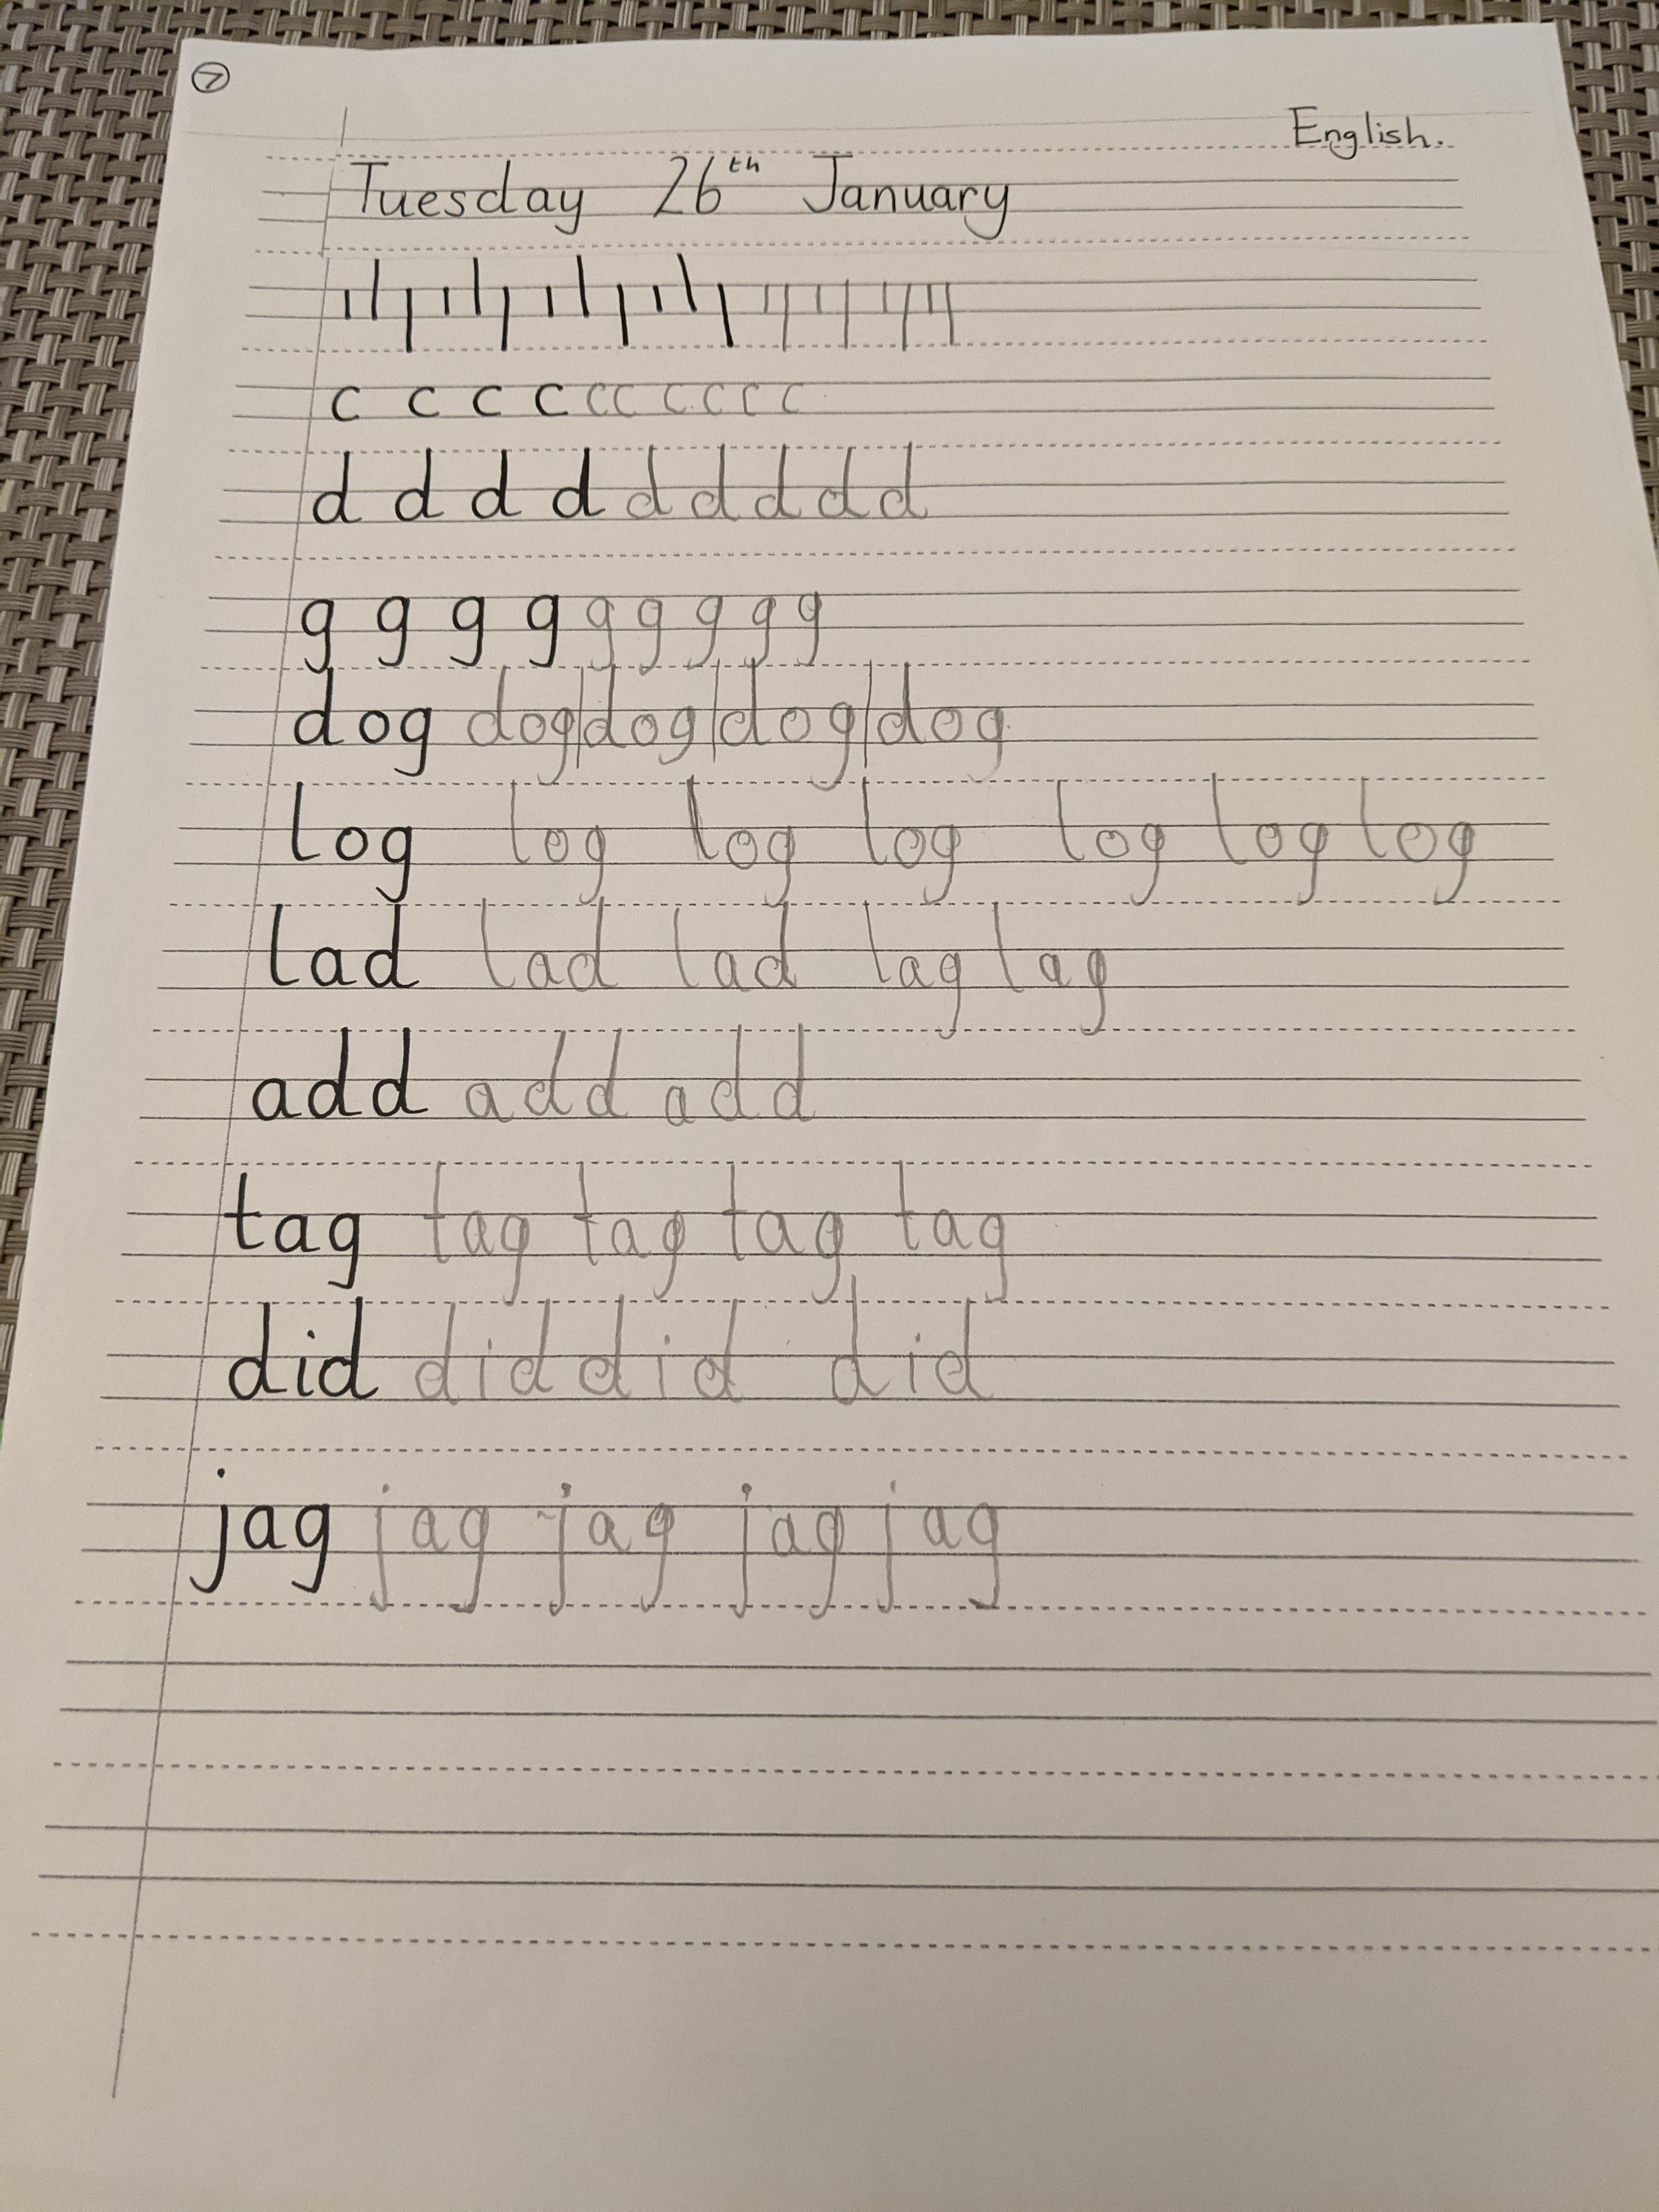 7
English.
Tuesday 26th January
c c c c c c c c c c
d d d d d d d d d
g g g g g g g g g
dog dog dog dog dog
log log log log log log log
lad lad lad lag lag
add add add
tag tag tag tag tag
did did did did
jag jag jag jag jag